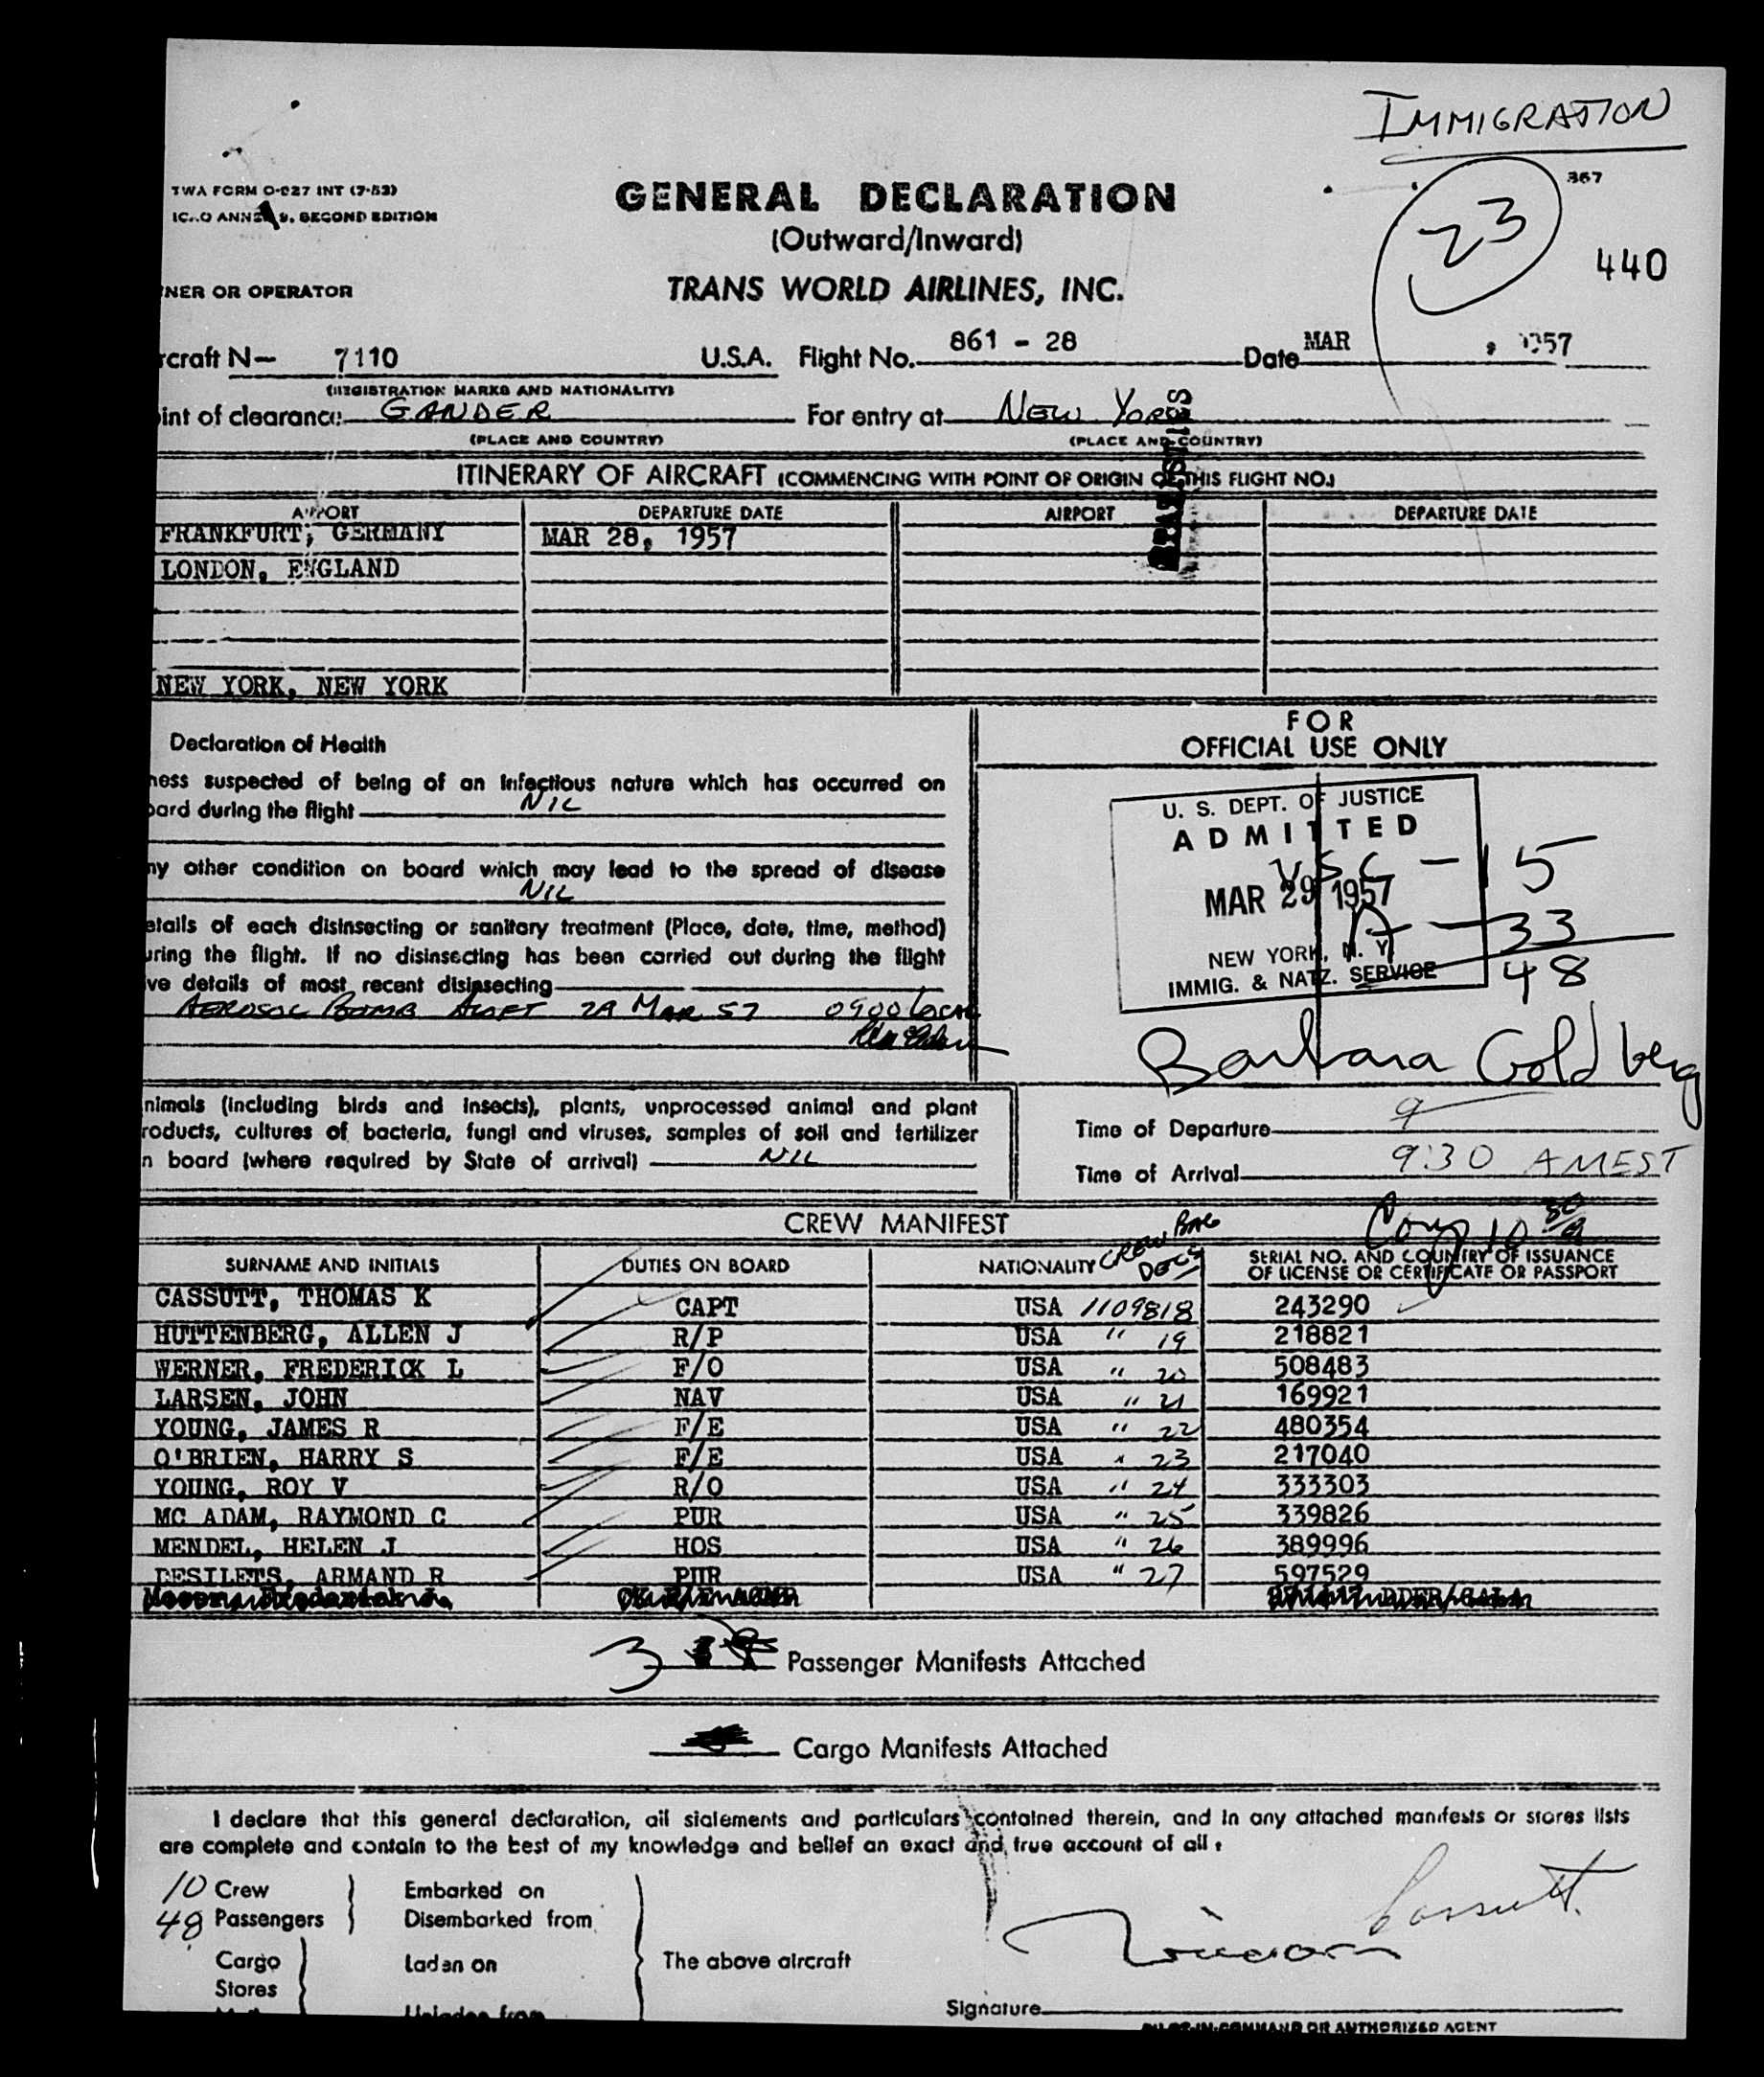 IMMIGRATION
TWA FORM O-027 INT (7-53)
367
GENERAL DECLARATION
23
SECOND EDITION
(Outward/Inward)
440
NER OR OPERATOR
TRANS WORLD AIRLINES, INC.
rcraft N— 7110 U.S.A. Flight No. 861 - 28 Date MAR , 1957
(REGISTRATION MARKS AND NATIONALITY)
int of clearance GANDER For entry at NEW YORK
(PLACE AND COUNTRY) (PLACE AND COUNTRY)
ITINERARY OF AIRCRAFT (COMMENCING WITH POINT OF ORIGIN OF THIS FLIGHT NO.)
AIRPORT DEPARTURE DATE AIRPORT DEPARTURE DATE
FRANKFURT, GERMANY MAR 28, 1957
LONDON, ENGLAND
NEW YORK, NEW YORK
Declaration of Health
FOR
OFFICIAL USE ONLY
ness suspected of being of an infectious nature which has occurred on
oard during the flight NIL
ny other condition on board which may lead to the spread of disease
NIL
etails of each disinsecting or sanitary treatment (Place, date, time, method)
uring the flight. If no disinsecting has been carried out during the flight
ve details of most recent disinsecting
AEROSOL BOMB ALOFT 29 MAR 57 0900
U. S. DEPT. OF JUSTICE
ADMITTED
USC - 15
MAR 29 1957
A - 33
NEW YORK, N. Y.
48
IMMIG. & NATZ. SERVICE
Barbara Goldberg
nimals (including birds and insects), plants, unprocessed animal and plant
roducts, cultures of bacteria, fungi and viruses, samples of soil and fertilizer
n board (where required by State of arrival) NIL
Time of Departure 9
Time of Arrival 9:30 AM EST
CREW MANIFEST
CREW BAG DECS
SURNAME AND INITIALS DUTIES ON BOARD NATIONALITY SERIAL NO. AND COUNTRY OF ISSUANCE
OF LICENSE OR CERTIFICATE OR PASSPORT
CASSUTT, THOMAS K CAPT USA 1109818 243290
HUTTENBERG, ALLEN J R/P USA " 19 218821
WERNER, FREDERICK L F/O USA " 20 508483
LARSEN, JOHN NAV USA " 21 169921
YOUNG, JAMES R F/E USA " 22 480354
O'BRIEN, HARRY S F/E USA " 23 217040
YOUNG, ROY V R/O USA " 24 333303
MC ADAM, RAYMOND C PUR USA " 25 339826
MENDEL, HELEN J HOS USA " 26 389996
DESILETS, ARMAND R PUR USA " 27 597529
3 Passenger Manifests Attached
Cargo Manifests Attached
I declare that this general declaration, all statements and particulars contained therein, and in any attached manifests or stores lists
are complete and contain to the best of my knowledge and belief an exact and true account of all:
10 Crew Embarked on
48 Passengers Disembarked from
Cassutt
Cargo Laden on The above aircraft
Stores
Unladen from
Signature
PILOT-IN-COMMAND OR AUTHORIZED AGENT